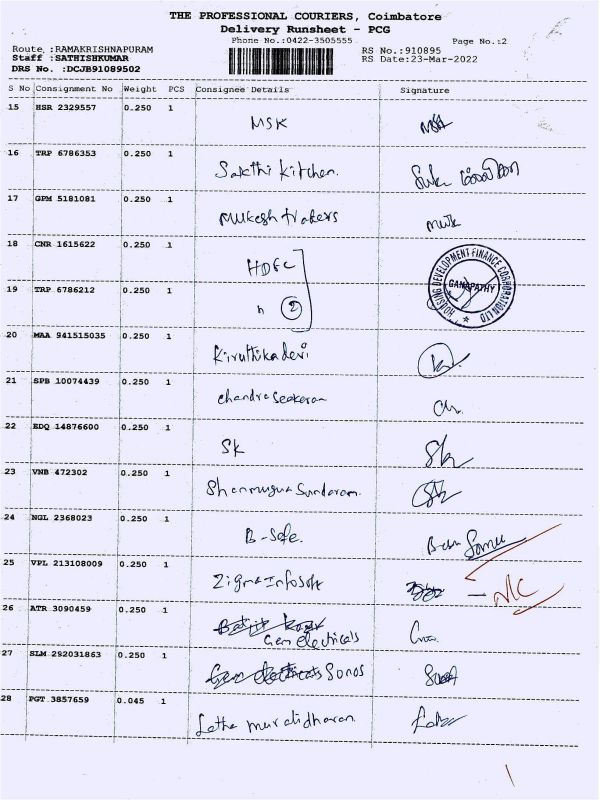 THE PROFESSIONAL COURIERS, Coimbatore
Delivery Runsheet - PCG
Phone No.:0422-3505555
Page No.:2
Route :RAMAKRISHNAPURAM
RS No.:910895
Staff :SATHISHKUMAR
RS Date:23-Mar-2022
DRS No. :DCJB91089502
S No Consignment No Weight PCS Consignee Details Signature
15 HSR 2329557 0.250 1
MSK
16 TRP 6786353 0.250 1
Sakthi Kitchen.
17 GPM 5181081 0.250 1
Mukesh traders
18 CNR 1615622 0.250 1
HDFC
HOUSING DEVELOPMENT FINANCE CORPORATION LTD
GANAPATHY
19 TRP 6786212 0.250 1
" 2
20 MAA 941515035 0.250 1
Kiruthikadevi
21 SPB 10074439 0.250 1
chandrasekaran
22 EDQ 14876600 0.250 1
SK Sk
23 VNB 472302 0.250 1
Shanmuga Sundaram.
24 NGL 2368023 0.250 1
B-Safe.
25 VPL 213108009 0.250 1
Zigma Infosoft
- N/C
26 ATR 3090459 0.250 1
Gem electricals
27 SLM 292031863 0.250 1
Sonos
28 PGT 3857659 0.045 1
Latha muralidharan